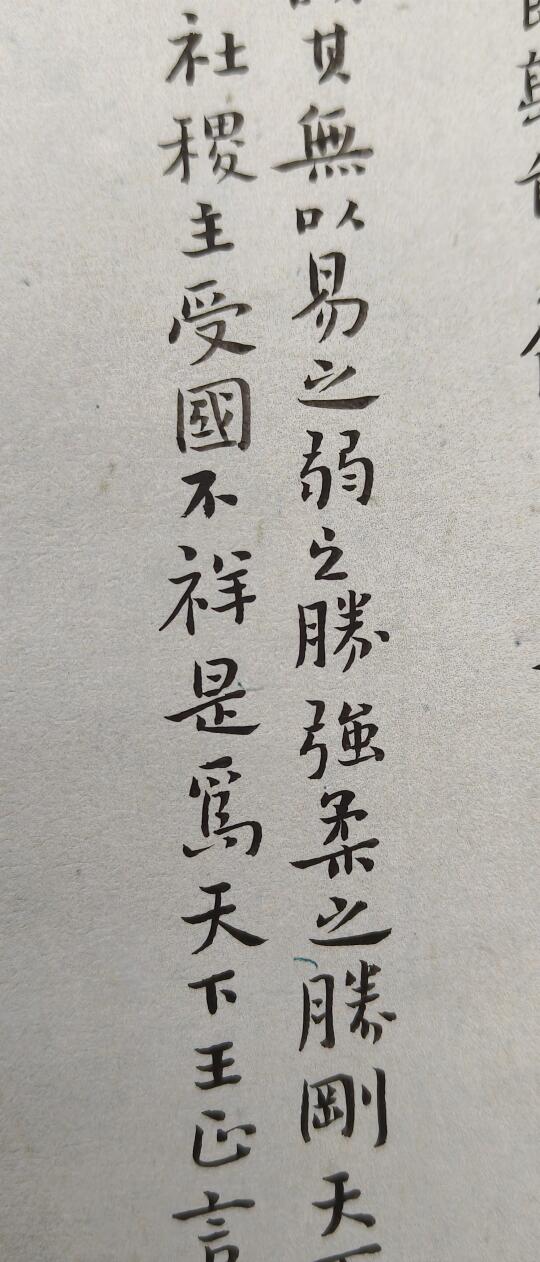 其無以易之弱之勝強柔之勝剛天
社稷主受國不祥是爲天下王正言